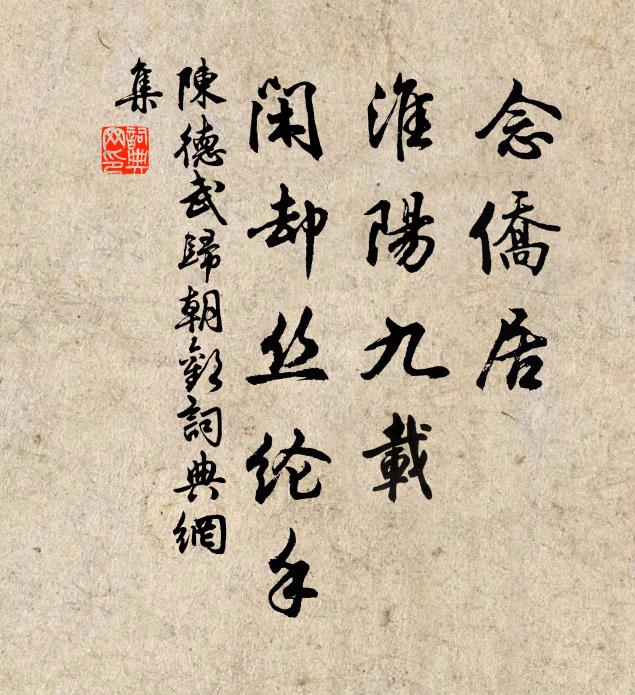 念僑居
淮陽九載
閑却丝纶手
陳德武歸朝歡詞典網
集
詞典
网印